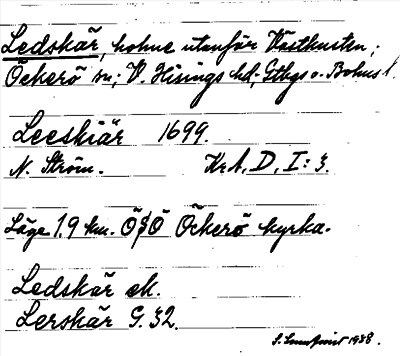 Ledskär, holme utanför Västkusten;
Öckerö sn; V. Hisings hd; Gtbgs o. Bohus l.
Leeskiär 1699.
N. Ström. Kr.A, D, I: 3.
Läge 1,9 km. ÖSÖ Öckerö kyrka.
Ledskär ek.
Lerskär G. 32.
1938.